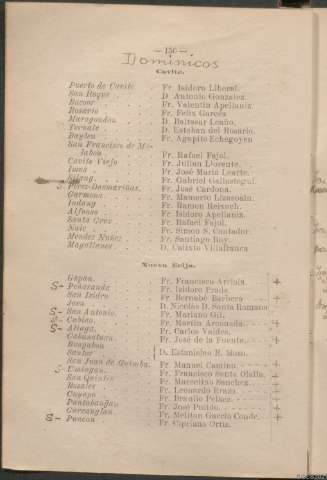 — 150 —
Dominicos
Cavite.
Puerto de Cavite . . Fr. Isidoro Liberal.
San Roque . . . D. Antonio Gonzalez.
Bacoor . . . Fr. Valentin Apellaniz.
Rosario . . . Fr. Felix Garcés
Maragondon . . . D. Baltasar Leaño.
Ternate . . . D. Esteban del Rosario.
Baylen . . . Fr. Agapito Echegoyen
San Francisco de Ma-
labon . . . Fr. Rafael Fajol.
Cavite Viejo . . . Fr. Julian Llorente.
Imus . . . Fr. José María Learte.
Silang . . . Fr. Gabriel Galinstegui.
S. Perez-Dasmariñas. Fr. José Cardona.
Carmona . . . Fr. Mamerto Lizasoain.
Indang . . . Fr. Ramon
Alfonso . . . Fr. Isidoro Apellaniz.
Santa Cruz . . . Fr. Rafael Fajol.
Naic . . . Fr. Simon S. Cantador.
Mendez Nuñez . . . Fr. Santiago Roy.
Magallanes . . . D. Calixto Villafranca
Nueva Ecija.
Gapan . . . Fr. Francisco Arriola. +
S- Peñaranda . . . Fr. Isidoro Prada.
San Isidro . . . Fr. Bernabé Barbero +
Jaen . . . D. Nicolás D. Santa Romana
S- San Antonio . . . Fr. Mariano Gil
S- Cabiao . . . Fr. Martin Armenda +
S- Aliaga . . . Fr. Carlos Valdés.
Cabanatuan . . . Fr. José de la Fuente. +
Bongabon
Santor . . . D. Estanislao R.
San Juan de Guimba. Fr. Manuel Camino +
S- Cuyapo . . . Fr. Francisco Santa Olalla. +
San Quintin . . . Fr. Marcelino Sanchez. +
Rosales . . . Fr. Leonardo Erazo. +
Fr. Braulio Pelaez. +
Pantabangan . . . Fr. José Pulido. +
Carranglan . . . Fr. Meliton Garcia Conde. +
S- Puncan . . . Fr. Cipriano Ortiz.